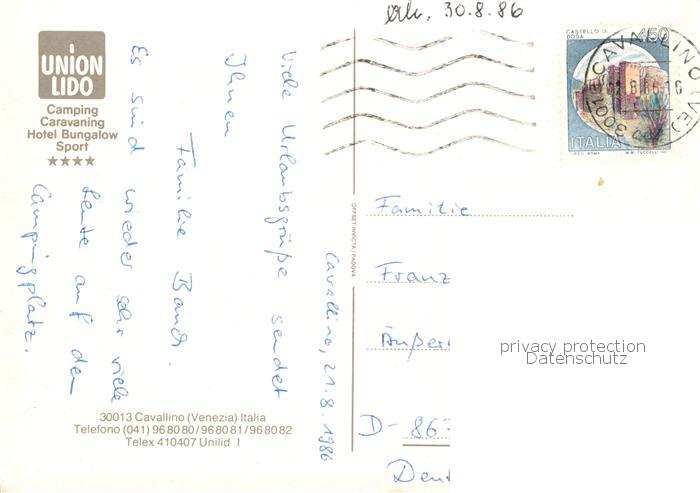 erh. 30.8.86
CASTELLO DI
BOSA
450
CAVALLINO (VE)
30013
ITALIA
I.P.Z.S. ROMA
UNION
LIDO
Camping
Caravaning
Hotel Bungalow
Sport
★★★★
Cavallino, 21.8.1986
Viele Urlaubsgrüße sendet
Ihnen
Familie Band.
Es sind wieder sehr viele
Leute auf dem
Campingplatz.
OFFSET INVICTA / PADOVA
Familie
Franz
Äußer
D-86
Deut
privacy protection
Datenschutz
30013 Cavallino (Venezia) Italia
Telefono (041) 968080/968081/968082
Telex 410407 Unilid I